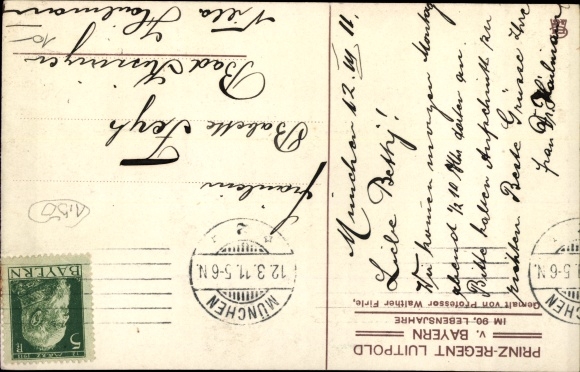 PRINZ-REGENT LUITPOLD
v. BAYERN
IM 90. LEBENSJAHRE
Gemalt von Professor Walther Firle.
München 12 III 11.
Liebe Betty!
Wir kommen morgen Montag
abend ½ 10 Uhr dorten an.
Bitte haben Aufschnitt zu
richten. Beste Grüsse Ihre
Frau Dr. Hailmann
Fräulein
Babette
Bad Kissingen
Villa Hailmann
10
1,50
BAYERN
5
MÜNCHEN
12.3.11. 5-6 N.
2
5-6 N.